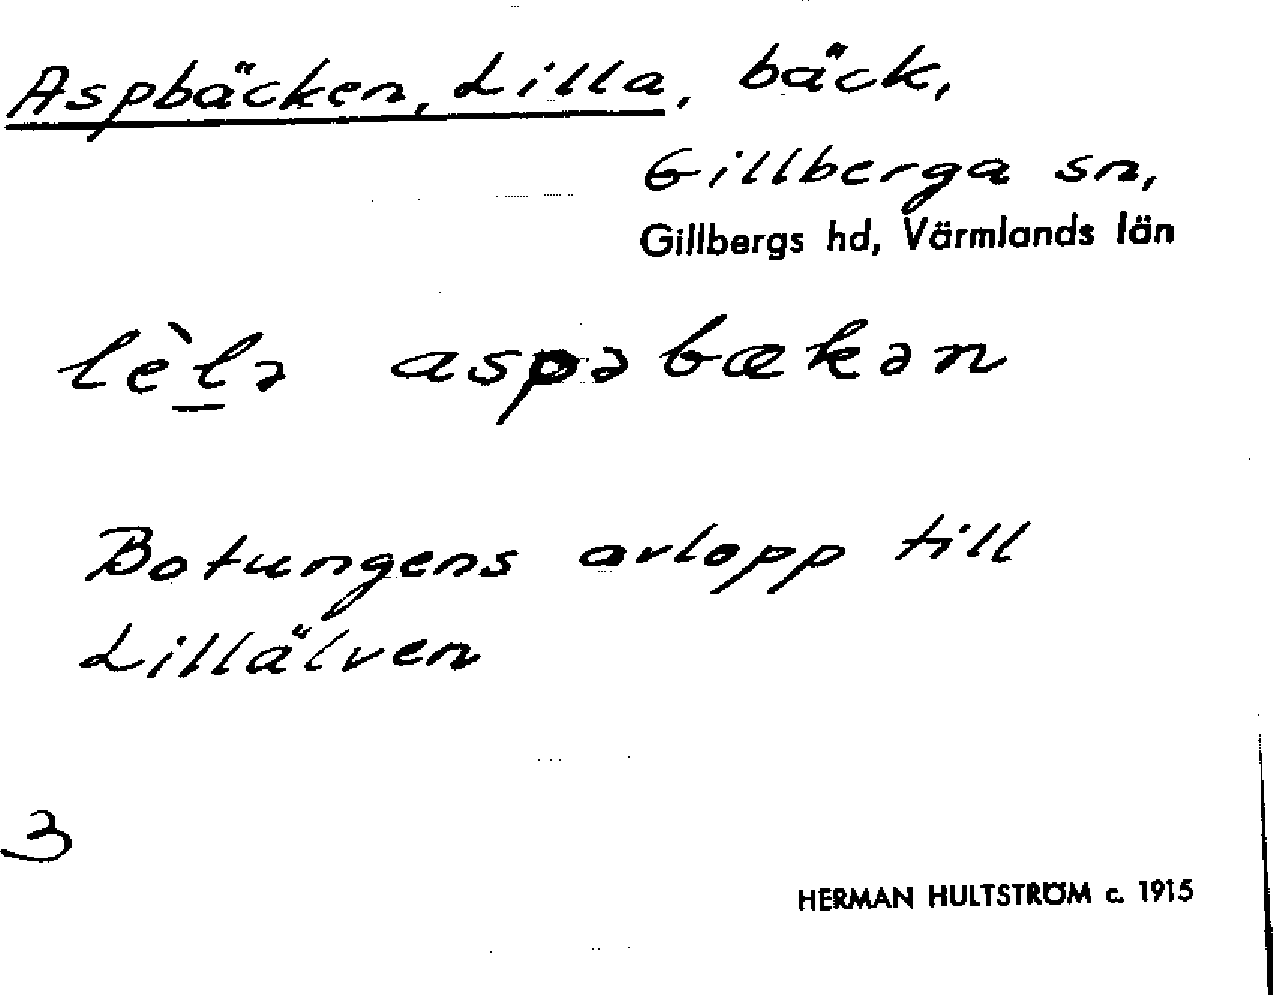 Aspbäcken, Lilla, bäck,
Gillberga sn,
Gillbergs hd, Värmlands län
lèl̲ə aspəbækən
Botungens avlopp till
Lillälven
3
HERMAN HULTSTRÖM c. 1915